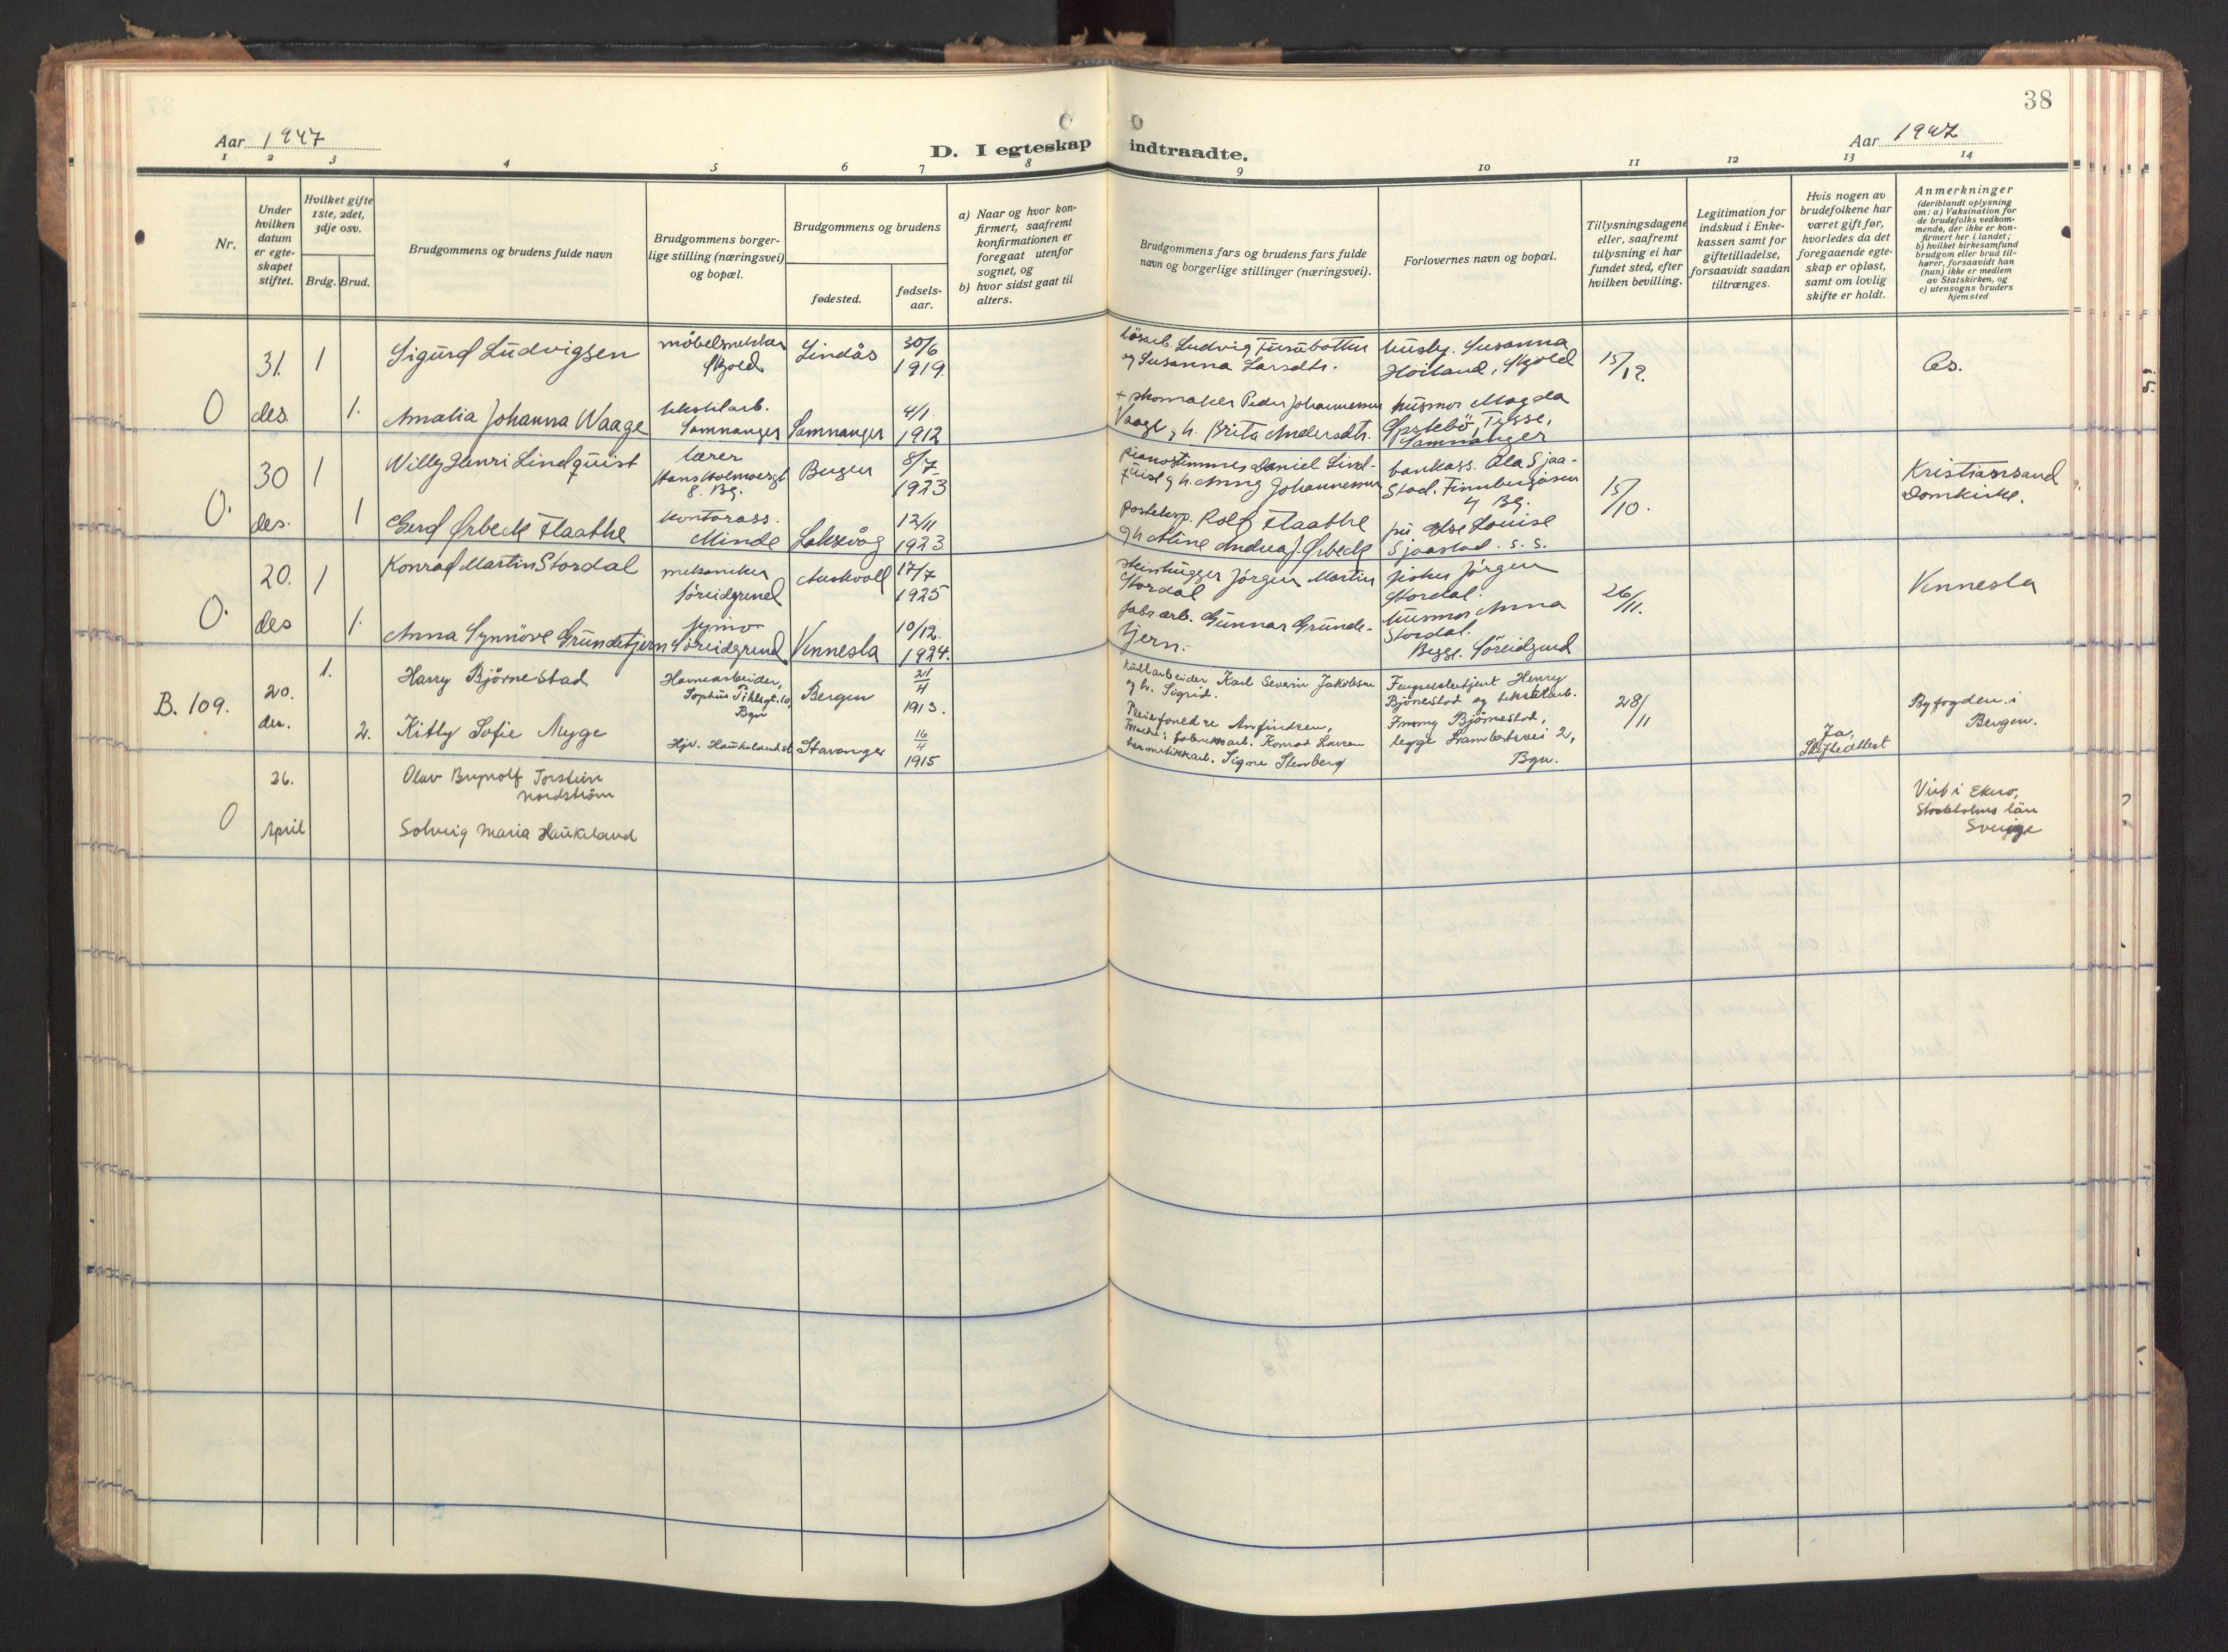 38
Aar 1947
D. I egteskap indtraadte.
Aar 1947
1 2 3 4 5 6 7 8 9 10 11 12 13 14
Nr.
Under
hvilken
datum
er egte-
skapet
stiftet.
Hvilket gifte
1ste, 2det,
3dje osv.
Brdg. Brud.
Brudgommens og brudens fulde navn
Brudgommens borger-
lige stilling (næringsvei)
og bopæl.
Brudgommens og brudens
fødested.
fødsels-
aar.
a) Naar og hvor kon-
firmert, saafremt
konfirmationen er
foregaat utenfor
sognet, og
b) hvor sidst gaat til
alters.
Brudgommens fars og brudens fars fulde
navn og borgerlige stillinger (næringsvei).
Forlovernes navn og bopæl.
Tillysningsdagene
eller, saafremt
tillysning ei har
fundet sted, efter
hvilken bevilling.
Legitimation for
indskud i Enke-
kassen samt for
giftetilladelse,
forsaavidt saadan
tiltrænges.
Hvis nogen av
brudefolkene har
været gift før,
hvorledes da det
foregaaende egte-
skap er opløst,
samt om lovlig
skifte er holdt.
Anmerkninger
(deriblandt oplysning
om: a) Vaksination for
de brudefolks vedkom-
mende, der ikke er kon-
firmert her i landet;
b) hvilket kirkesamfund
brudgom eller brud til-
hører, forsaavidt han
(hun) ikke er medlem
av Statskirken, og
c) utensogns bruders
hjemsted
O
31.
des.
1
Sigurd Ludvigsen
Skjold
Lindås
30/6
1919.
og Susanna Larsdtr.
husby. Susanna
Høiland, Skjold
15/12.
1.
Amalia Johanna Waage
tekstilarb.
Samnanger
Samnanger
4/1
1912
+ skomaker Peder Johannessen
Vaage, h. Brita Andersdtr.
husmor Magda
Tysse,
Samnanger
O.
30
des.
1
Willy Henri Lindquist
lærer
8. Bg.
Bergen
8/7
1923
pianostimmer Daniel Lind-
quist g h. Anny Johannessen
bankass. Ola Sjaa-
stad. Finnbergåsen
4 Bg.
15/10.
Kristiansand
Domkirke.
1
Gerd Ørbeck Flaathe
kontorass.
Minde
Laksevåg
12/11
1923
posteksp. Rolf Flaathe
g h Aline Andrea J. Ørbeck
fru Else Louise
Sjaastad. s. s.
O.
20.
des
1
Konrad Martin Stordal
mekaniker
Søreidgrend
Auskvoll
17/7
1925
steinhugger Jørgen Martin
Stordal
fisker Jørgen
Stordal.
26/11.
Vennesla
1.
Anna Synnøve Grundetjern
Søreidgrend
Vennesla
10/12.
1924.
fabr arb. Gunnar Grunde-
tjern.
husmor Anna
Stordal.
Begge. Søreidgrend
B. 109.
20.
des.
1.
Harry Bjørnestad
Havnearbeider,
Sophus Pihlsgt. 10,
Bgn
Bergen
21/4
1913.
kullarbeider Karl Severin Jakobsen
g h. Sigrid.
Fengselsbetjent Henry
Bjørnestad og tekstilarb.
28/11
Byfogden i
Bergen.
2.
Kitty Sofie Nygge
Hjv. Haukelandsh
Stavanger
16/4
1915
Pleieforeldre Amfindsen,
fabrikkarb. Konrad Larsen
hermetikkarb. Signe Stenberg
Fanny Bjørnestad,
begge Lrambertsvei 2,
Bgn.
Ja,
Skifteattest
O
26.
April
Olav Brynolf Torstein
Nordstrøm
Solveig Maria Haukeland
Viet i Ekerø,
Stockholms län
Sverige